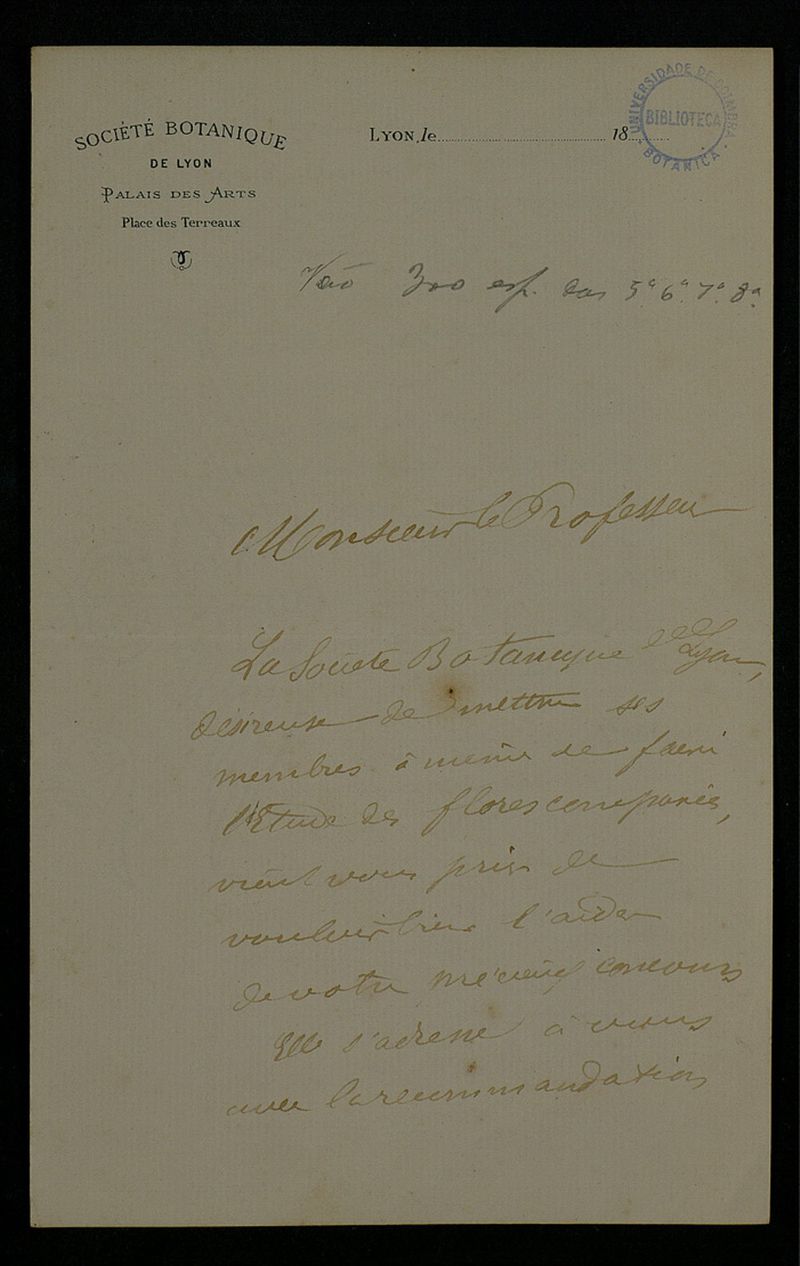 SOCIÉTÉ BOTANIQUE
DE LYON
PALAIS DES ARTS
Place des Terreaux
LYON, le 18
UNIVERSIDADE DE COIMBRA
BIBLIOTECA
BOTANICA
Vão 300 esp. das 5ª 6ª 7ª 8ª
Monsieur le Professeur
La Société Botanique de Lyon,
désireuse de mettre ses
membres à même de faire
l'Etude des flores comparées,
vient vous prier de
vouloir bien l'aider
de votre précieux concours
Elle s'adresse à vous
avec la recommandation